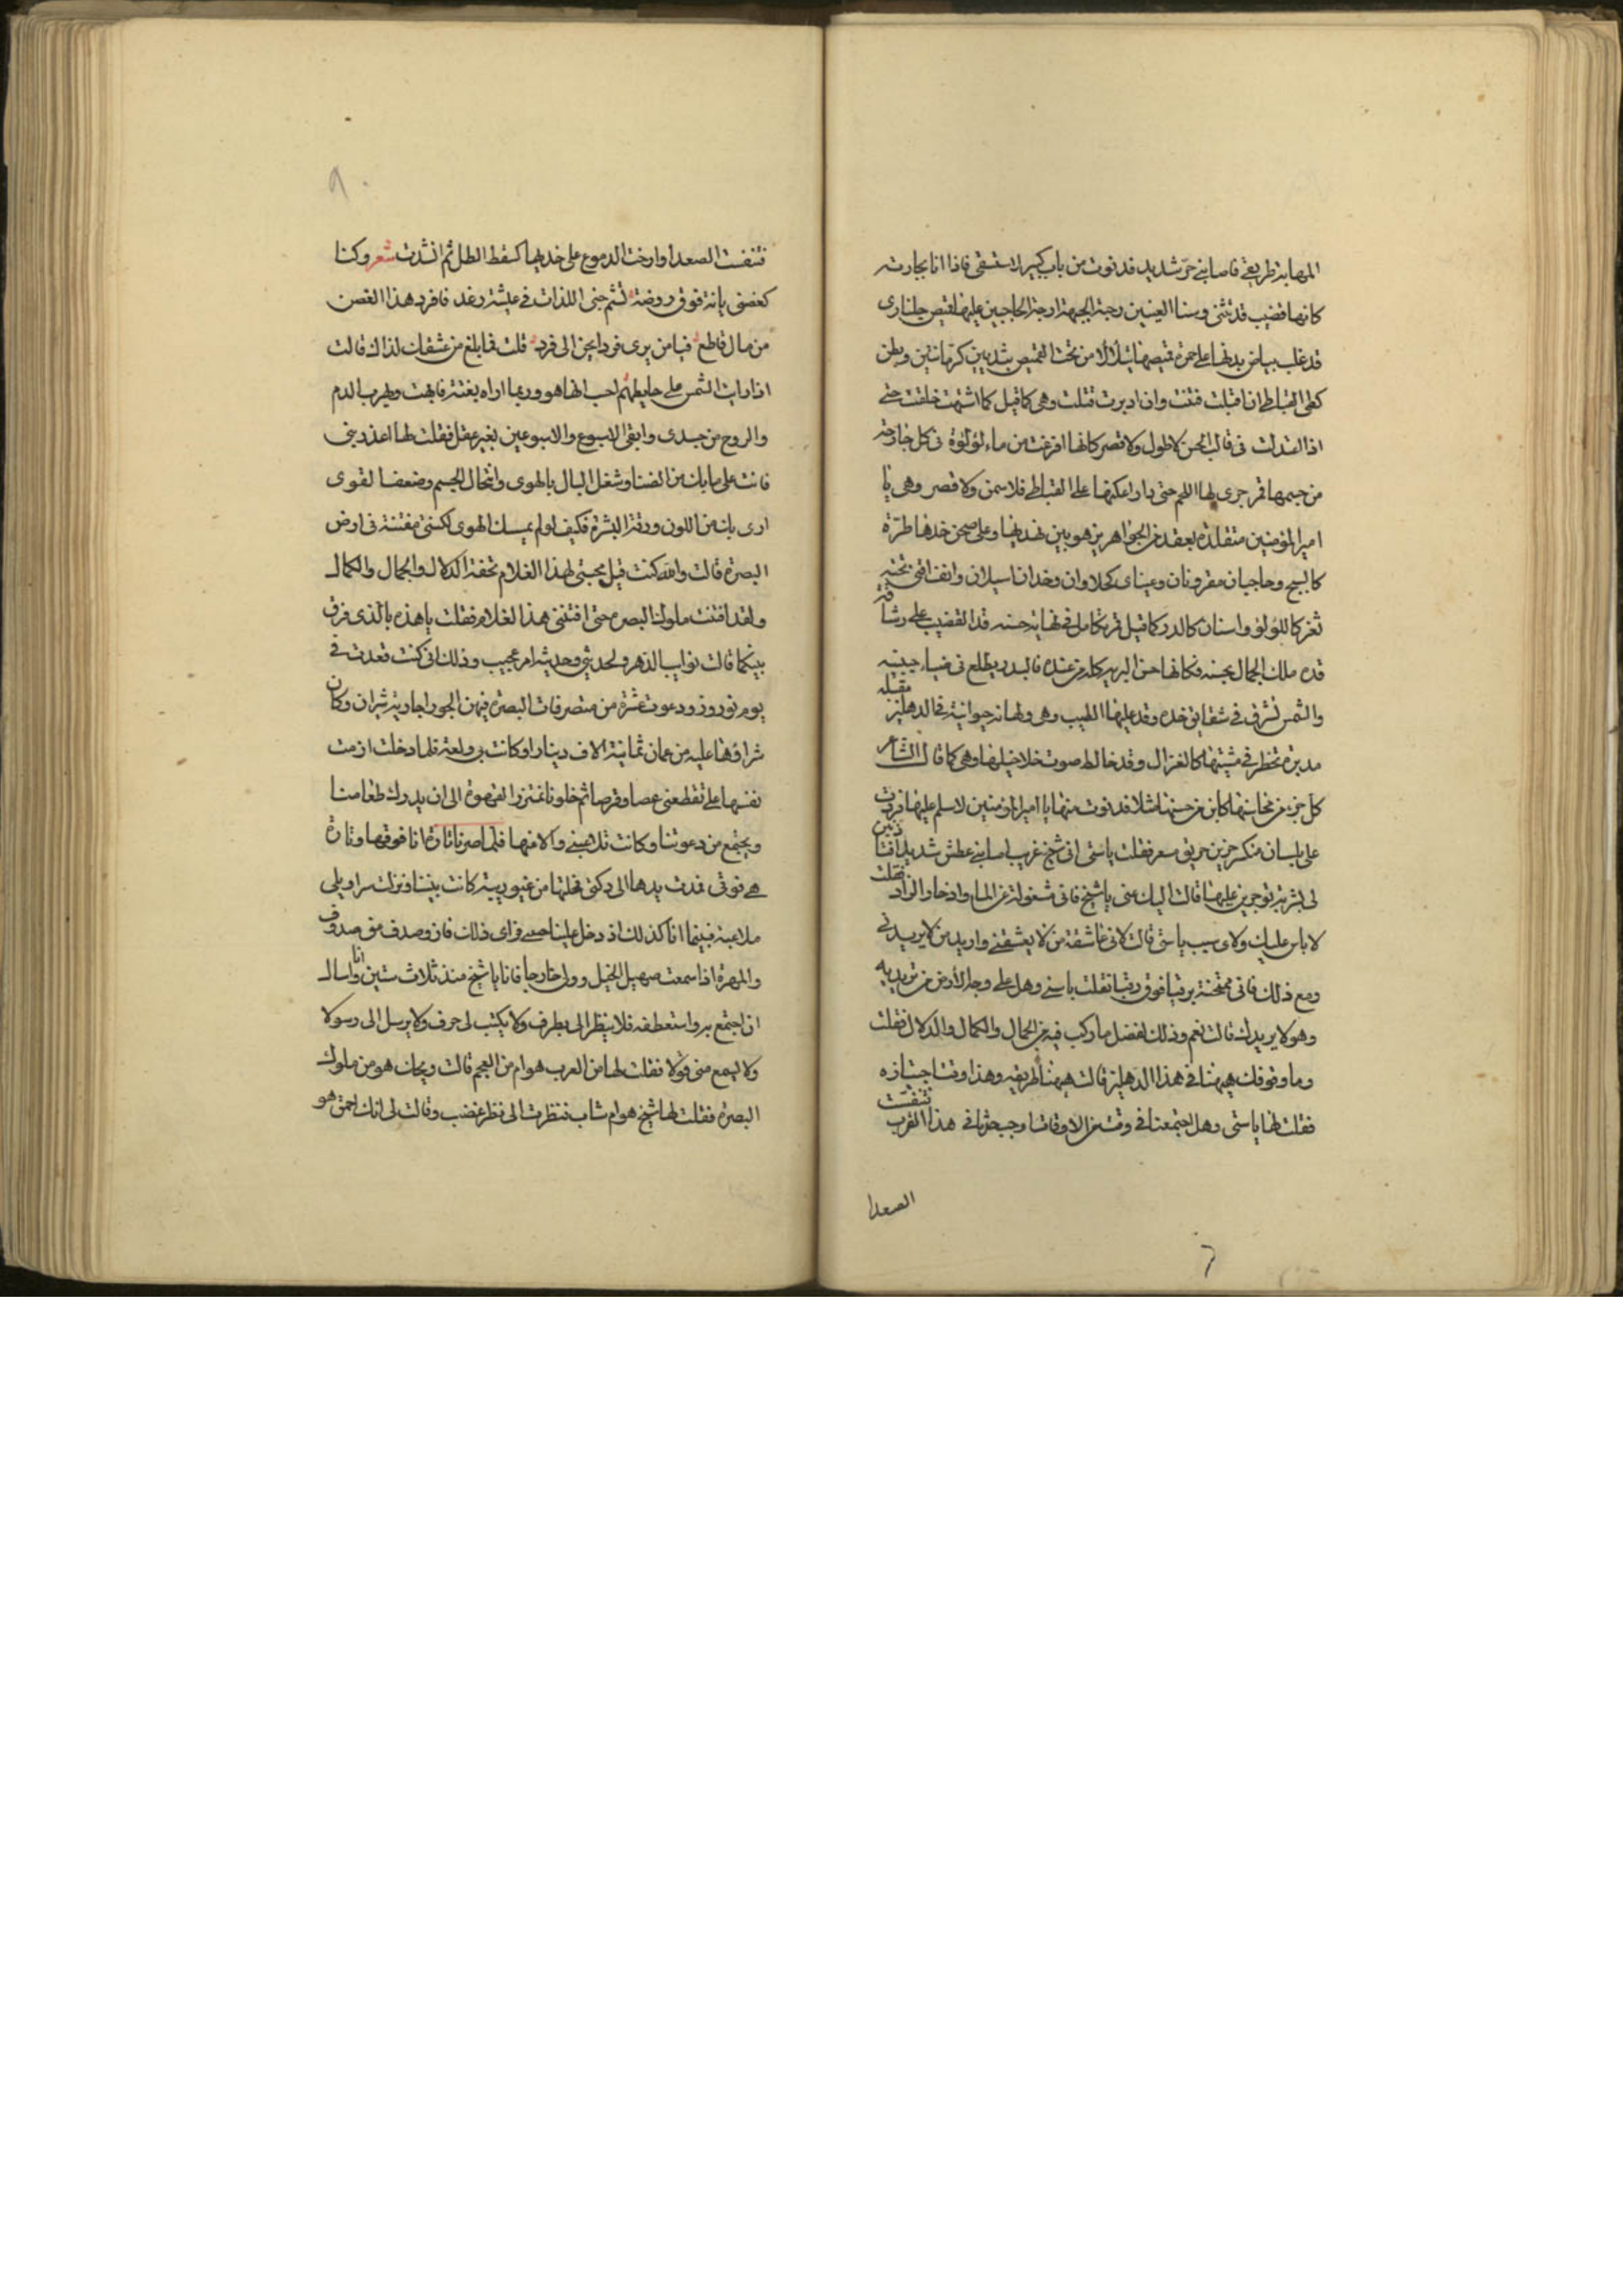 المهابة طريقي فاصابني حرّ شديد فدنوت من باب كبير لاستسقي فاذا انا بجارية
كانها قضيب قد تثنى وسنا العينين زجة الحاجبين عليها قميص جلناري
قد غلب بياض يديها على حمرة قميصها يتلألأ من تحت القميص بثديين كرمانتين وبطن
كطي القباطي ان اقبلت فتنت وان ادبرت قتلت وهي كما قيل كما اشتهت خلقت حتى
اذا اعتدلت في قالب الحسن لا طول ولا قصر كانها افرغت من ماء لؤلؤة في كل جارحة
من جسمها قمر جرى بها اللحم حتى على القباطي فلا سمن ولا قصر وهي يا
امير المؤمنين متقلدة بعقد من الجواهر يزهو بين نهديها وعلى صحن خدها طرّة
كالسبج وحاجبان مقرونان وعينان كحلاوان وخدان اسيلان وانف اقنى تحته
ثغر كاللؤلؤ واسنان كالدر كما قيل قمر تكامل في نهاية حسنه قد القضيب على رشاقة
قده ملك الجمال بحسنه فكانها حسن البرية كله من عنده فالبدر يطلع في ضياء جبينه
والشمس تشرق في شقايق خده وقد عليها الطيب وهي ولهانة حيرانة في الدهليز مقبلة
مدبرة تخطر في مشيتها كالغزال وقد خالط صوت خلاخيلها وهي كما قال الشاعر
كل جزء من محاسنها كاين من حسنها مثلا فدنوت منها يا امير المؤمنين لاسلم عليها فردت
على بلسان منكسر حزين فقلت يا ستي اني شيخ غريب اصابني عطش شديد افتأذنين
لي بشربة توجرين عليها قالت اليك عني يا شيخ فاني مشغولة عن الماء وادخار الزاد فقلت
لا باس عليك ولاي سبب يا ستي قالت لاني عاشقة من لا يعشقني واريد من لا يريدني
ومع ذلك فاني ممتحنة برقبا فوق رقبا فقلت يا ستي وهل على وجه الارض من تريديه
وهو لا يريدك قالت نعم وذلك لفضل ما ركب فيه من الجمال والكمال والدلال فقلت
وما وقوفك هيهنا في هذا الدهليز قالت هيهنا طريقه وهذا وقت اجتيازه
فقلت لها يا ستي وهل اجتمعتما في وقت من الاوقات اوجب حزنا في هذا القرب فتنفست
الصعدا
٩٠
فتنفست الصعدا وارخت الدموع على خديها كسقط الطل ثم انشدت شعر وكنا
كغصني بانة فوق روضة نشم جنى اللذات في عيشة رغد فافرد هذا الغصن
من مال قاطع فيا من يرى فردا يحن الى فرد قلت فما بلغ من عشقك لذاك قالت
اذا رايت الشمس على حايطهم احسب انها هو وربما اراه بغتة فابهت ويهرب الدم
والروح من جسدي وابقى الاسبوع والاسبوعين بغير عقل فقلت لها اعذريني
فانت على ما بك من الضنا وشغل البال بالهوى وانتحال الجسم وضعف القوى
ارى بك من اللون ورقة البشرة فكيف لو لم يمسك الهوى لكنتي مفتنة في ارض
البصرة قالت والله كنت قبل محبتي لهذا الغلام تحفة الدلال والجمال والكمال
ولقد افتنت ملوك البصرة حتى افتتني هذا الغلام فقلت يا هذه بالذي فرق
بينكما قالت نوايب الدهر ولحديثي وحديثه امر عجيب وذلك اني كنت قعدت في
يوم نوروز ودعوت عشرة من البصرة فيهن الحور لجارية شران وكان
شراؤها عليه من عمان ثمانية الاف دينار وكانت بي ولعة فلما دخلت ارمت
نفسها علي تقطعني عضا وقرصا ثم خلونا الى ان يدرك طعامنا
ويجتمع من دعوتنا وكانت تلاعبني والاعبها فلما صرنا تارة انا فوقها وتارة
هي فوقي فمدت يدها الى دكتي فحلتها من غير ريبة كانت بيننا ونزلت سراويلي
ملاعبة فبينما انا كذلك اذ دخل علينا وراى ذلك فان وصدف مني صدوف
والمهرة اذا سمعت صهيل الخيل وولى خارجا فانا يا شيخ منذ ثلاث سنين انا واسال
ان اجتمع به واستعطفه فلا ينظر الى بطرف ولا يكتب لى حرف ولا يرسل الى رسولا
ولا يسمع منى قولا فقلت لها من العرب هو ام من العجم قالت ويحك هو من ملوك
البصرة فقلت لها شيخ هو ام شاب فنظرت الى نظر غضب وقالت لى انك احمق هو